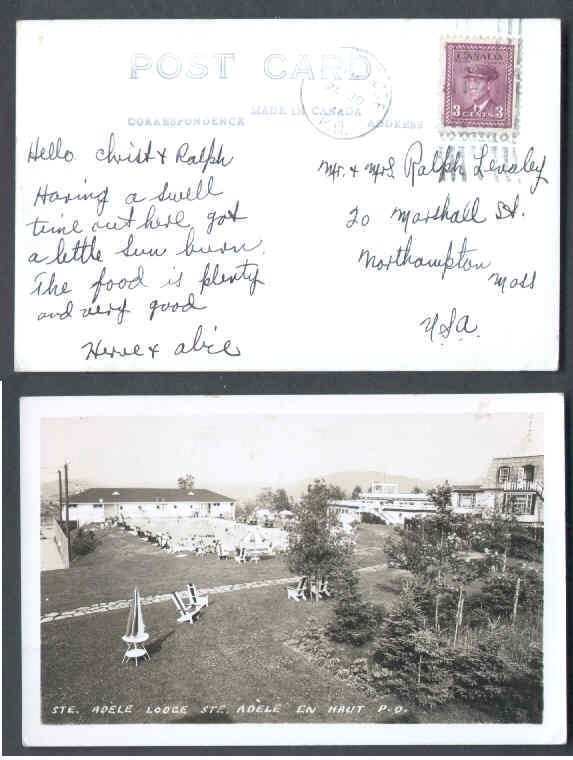 POST CARD
MADE IN CANADA
CORRESPONDENCE
ADDRESS
CANADA
3 CENTS 3
Hello Christ & Ralph
Having a swell
time out here got
a little sun burn.
The food is plenty
and very good
Herve & Alice
Mr. & Mrs Ralph Levaley
20 Marshall St.
Northampton
Mass
U.S.A.
STE. ADELE LODGE STE. ADÈLE EN HAUT P.Q.